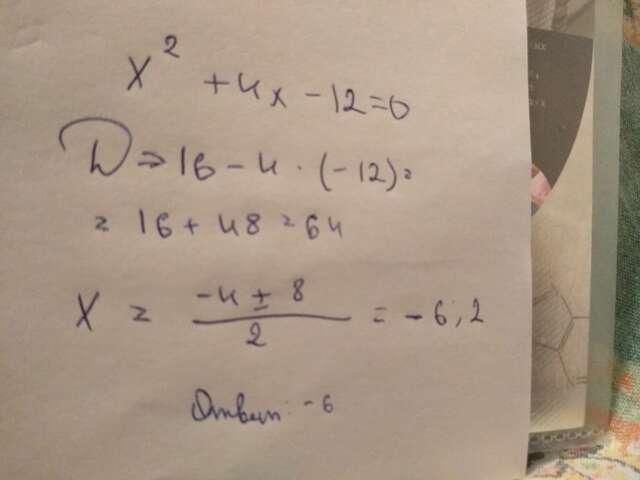 x² + 4x - 12 = 0
D = 16 - 4 · (-12) =
= 16 + 48 = 64
x = (-4 ± 8)/2 = -6; 2
Ответ: -6